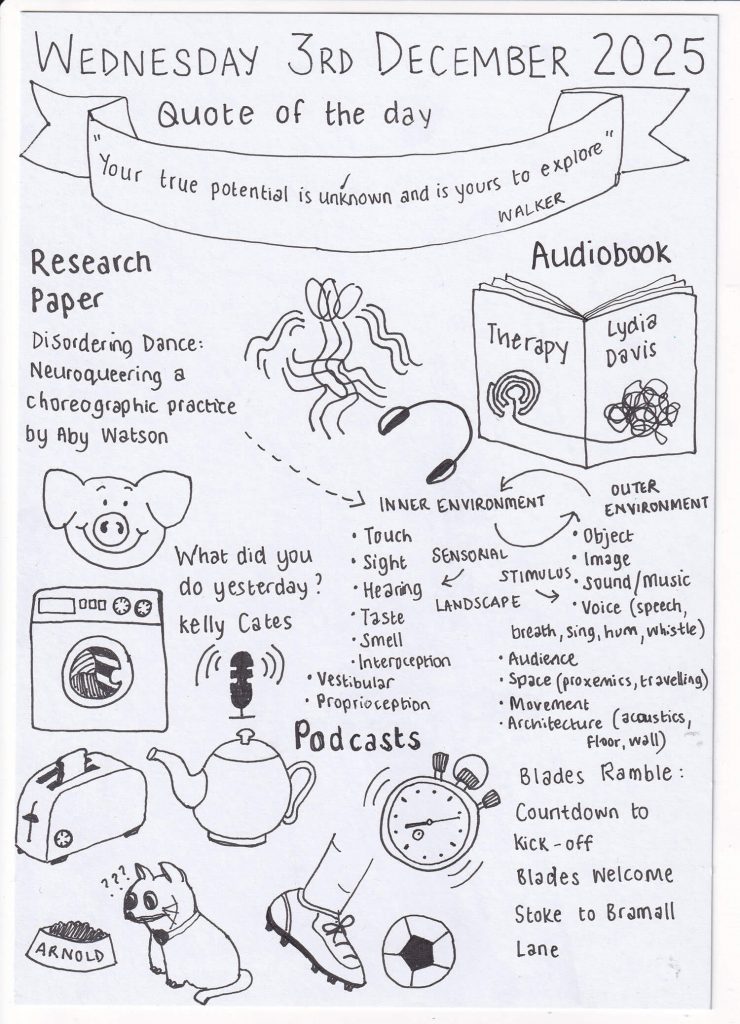 WEDNESDAY 3RD DECEMBER 2025
Quote of the day
"Your true potential is unknown and is yours to explore"
WALKER
Research
Paper
Disordering Dance:
Neuroqueering a
choreographic practice
by Aby Watson
Audiobook
Therapy
Lydia
Davis
INNER ENVIRONMENT
OUTER
ENVIRONMENT
SENSORIAL
LANDSCAPE
STIMULUS
• Touch
• Sight
• Hearing
• Taste
• Smell
• Interoception
• Vestibular
• Proprioception
• Object
• Image
• Sound/Music
• Voice (speech,
breath, sing, hum, whistle)
• Audience
• Space (proxemics, travelling)
• Movement
• Architecture (acoustics,
floor, wall)
What did you
do yesterday?
Kelly Cates
Podcasts
Blades Ramble:
Countdown to
Kick-off
Blades Welcome
Stoke to Bramall
Lane
???
ARNOLD